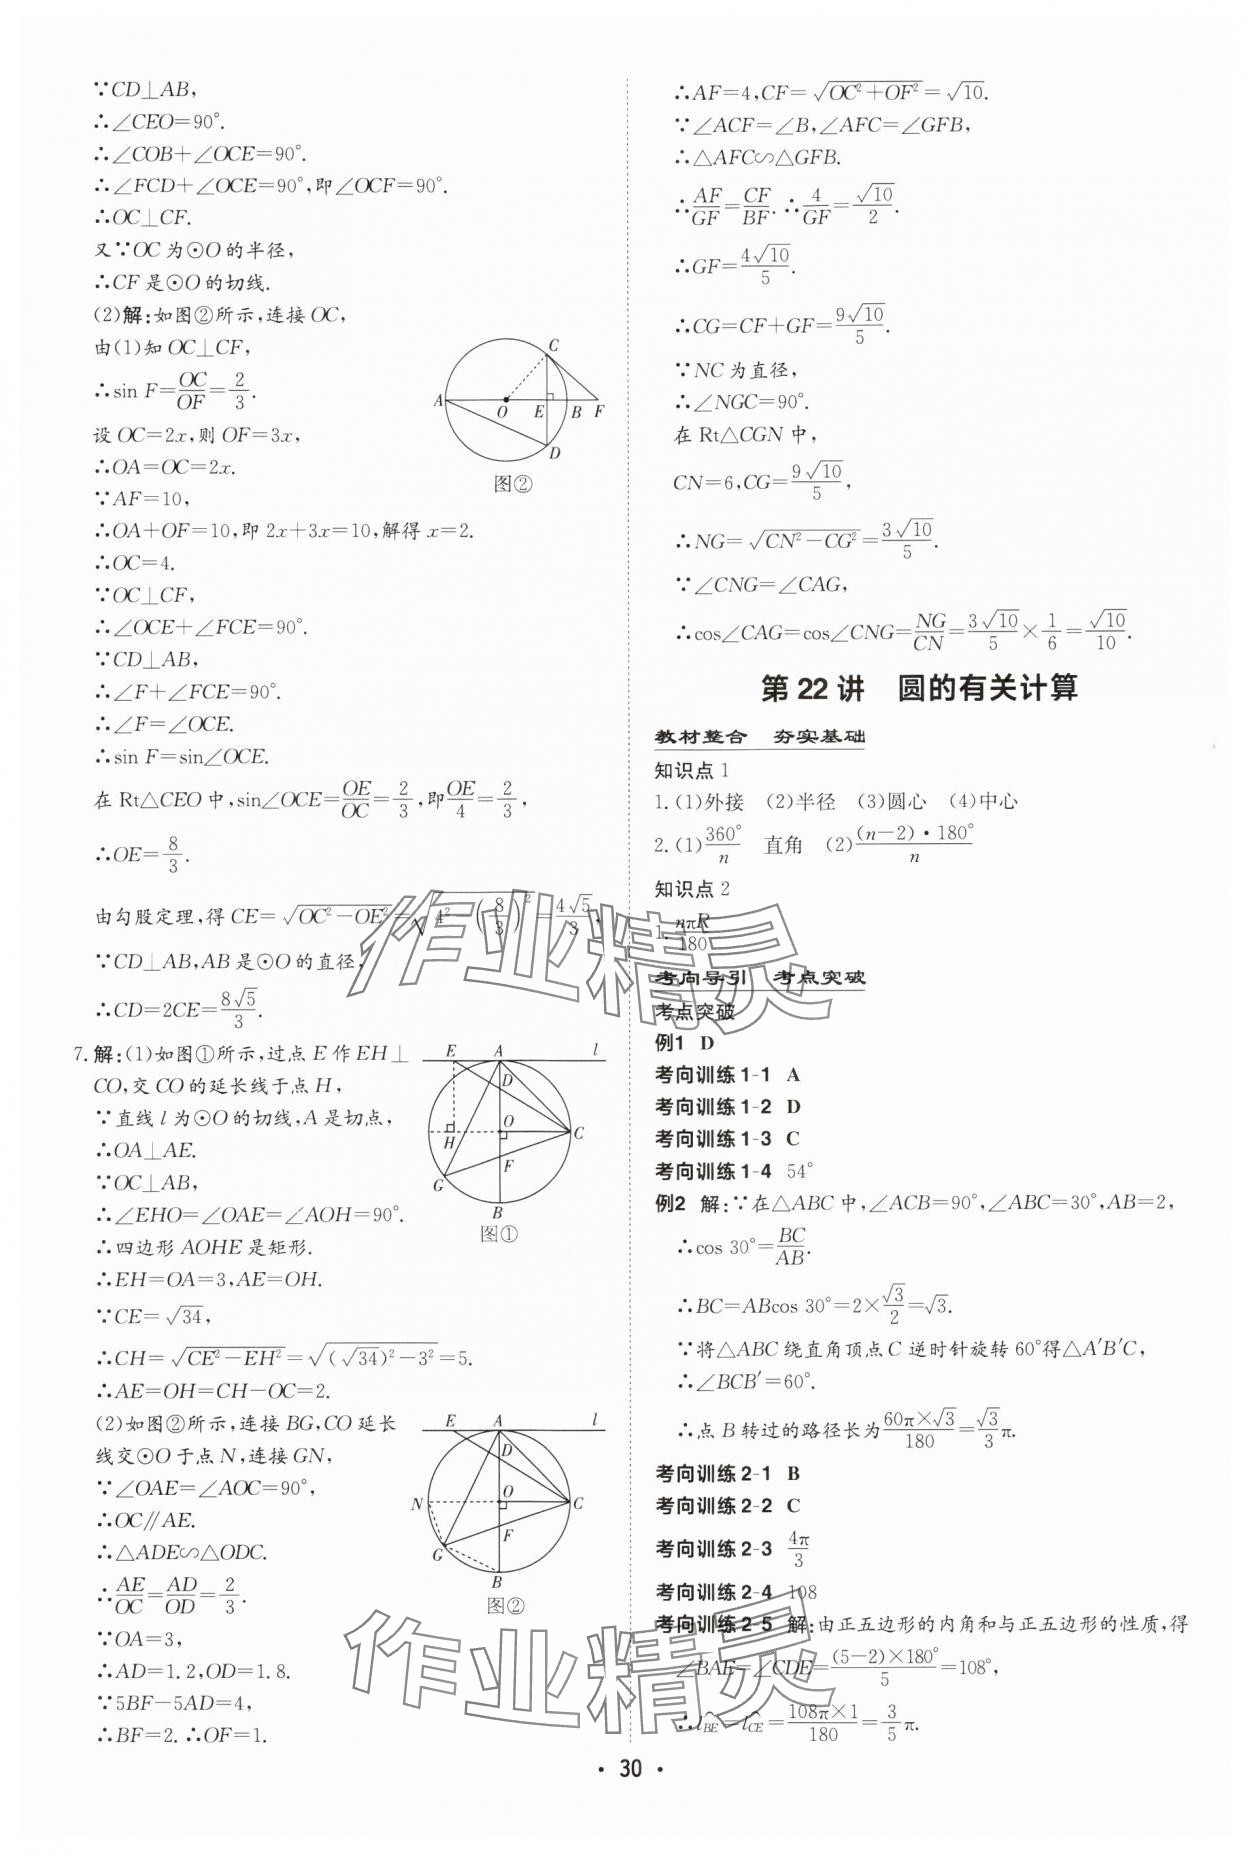 ∵CD⊥AB,
∴∠CEO=90°.
∴∠COB+∠OCE=90°.
∴∠FCD+∠OCE=90°,即∠OCF=90°.
∴OC⊥CF.
又∵OC为⊙O的半径,
∴CF是⊙O的切线.
(2)解:如图②所示,连接OC,
由(1)知OC⊥CF,
∴sin F=OC/OF=2/3.
设OC=2x,则OF=3x,
∴OA=OC=2x.
∵AF=10,
∴OA+OF=10,即2x+3x=10,解得x=2.
∴OC=4.
∵OC⊥CF,
∴∠OCE+∠FCE=90°.
∵CD⊥AB,
∴∠F+∠FCE=90°.
∴∠F=∠OCE.
∴sin F=sin∠OCE.
在Rt△CEO中,sin∠OCE=OE/OC=2/3,即OE/4=2/3,
∴OE=8/3.
由勾股定理,得CE=√(OC²-OE²)=√(4²-(8/3)²)=4√5/3.
∵CD⊥AB,AB是⊙O的直径,
∴CD=2CE=8√5/3.
A O E B F C D
图②
7.解:(1)如图①所示,过点E作EH⊥
CO,交CO的延长线于点H,
∵直线l为⊙O的切线,A是切点,
∴OA⊥AE.
∵OC⊥AB,
∴∠EHO=∠OAE=∠AOH=90°.
∴四边形AOHE是矩形.
∴EH=OA=3,AE=OH.
∵CE=√34,
∴CH=√(CE²-EH²)=√((√34)²-3²)=5.
∴AE=OH=CH-OC=2.
E A l D O H C F G B
图①
(2)如图②所示,连接BG,CO延长
线交⊙O于点N,连接GN,
∵∠OAE=∠AOC=90°,
∴OC∥AE.
∴△ADE∽△ODC.
∴AE/OC=AD/OD=2/3.
∵OA=3,
∴AD=1.2,OD=1.8.
∵5BF-5AD=4,
∴BF=2.∴OF=1.
E A l D O N C F G B
图②
∴AF=4,CF=√(OC²+OF²)=√10.
∵∠ACF=∠B,∠AFC=∠GFB,
∴△AFC∽△GFB.
∴AF/GF=CF/BF.∴4/GF=√10/2.
∴GF=4√10/5.
∴CG=CF+GF=9√10/5.
∵NC为直径,
∴∠NGC=90°.
在Rt△CGN中,
CN=6,CG=9√10/5,
∴NG=√(CN²-CG²)=3√10/5.
∵∠CNG=∠CAG,
∴cos∠CAG=cos∠CNG=NG/CN=3√10/5×1/6=√10/10.
第22讲 圆的有关计算
教材整合 夯实基础
知识点1
1.(1)外接 (2)半径 (3)圆心 (4)中心
2.(1)360°/n 直角 (2)(n-2)·180°/n
知识点2
1.nπR/180
考向导引 考点突破
考点突破
例1 D
考向训练1-1 A
考向训练1-2 D
考向训练1-3 C
考向训练1-4 54°
例2 解:∵在△ABC中,∠ACB=90°,∠ABC=30°,AB=2,
∴cos 30°=BC/AB.
∴BC=ABcos 30°=2×√3/2=√3.
∵将△ABC绕直角顶点C逆时针旋转60°得△A′B′C,
∴∠BCB′=60°.
∴点B转过的路径长为60π×√3/180=√3/3π.
考向训练2-1 B
考向训练2-2 C
考向训练2-3 4π/3
考向训练2-4 108
考向训练2-5 解:由正五边形的内角和与正五边形的性质,得
∠BAE=∠CDE=(5-2)×180°/5=108°,
∴l⌒BE=l⌒CE=108π×1/180=3/5π.
·30·
作业精灵
作业精灵